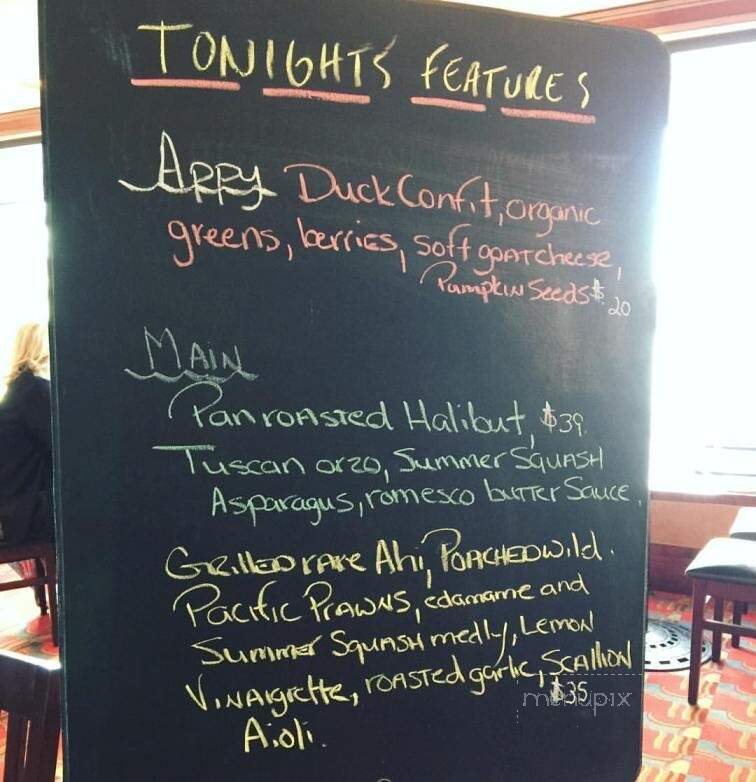 TONIGHTS FEATURES
APPY Duck Confit, organic
greens, berries, soft goat cheese,
Pumpkin Seeds $ 20
MAIN
Pan roasted Halibut, $39.
Tuscan orzo, Summer Squash
Asparagus, romesco butter Sauce.
Grilled rare Ahi, Poached wild.
Pacific Prawns, edamame and
Summer Squash medly, Lemon
Vinaigrette, roasted garlic, Scallion
Aioli. $35
menupix